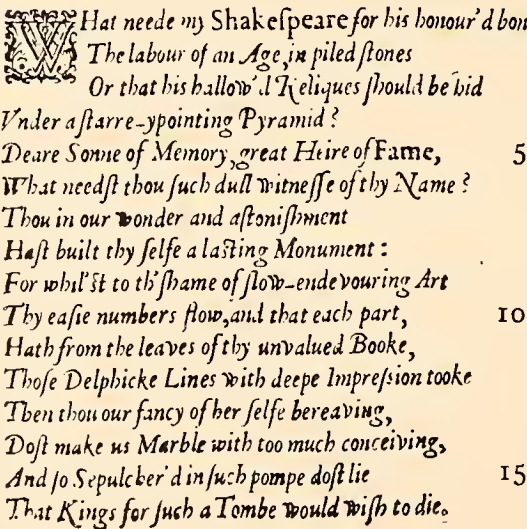 WHat neede my Shakeſpeare for his honour'd bon
The labour of an Age, in piled ſtones
Or that his hallow'd Reliques ſhould be hid
Vnder a ſtarre-ypointing Pyramid?
Deare Sonne of Memory, great Heire of Fame, 5
What needſt thou ſuch dull witneſſe of thy Name?
Thou in our wonder and aſtoniſhment
Haſt built thy ſelfe a laſting Monument:
For whil'ſt to th'ſhame of ſlow-endevouring Art
Thy eaſie numbers flow, and that each part, 10
Hath from the leaves of thy unvalued Booke,
Thoſe Delphicke Lines with deepe Impreſsion tooke
Then thou our fancy of her ſelfe bereaving,
Doſt make us Marble with too much conceiving,
And ſo Sepulcher'd in ſuch pompe doſt lie 15
That Kings for ſuch a Tombe would wiſh to die.